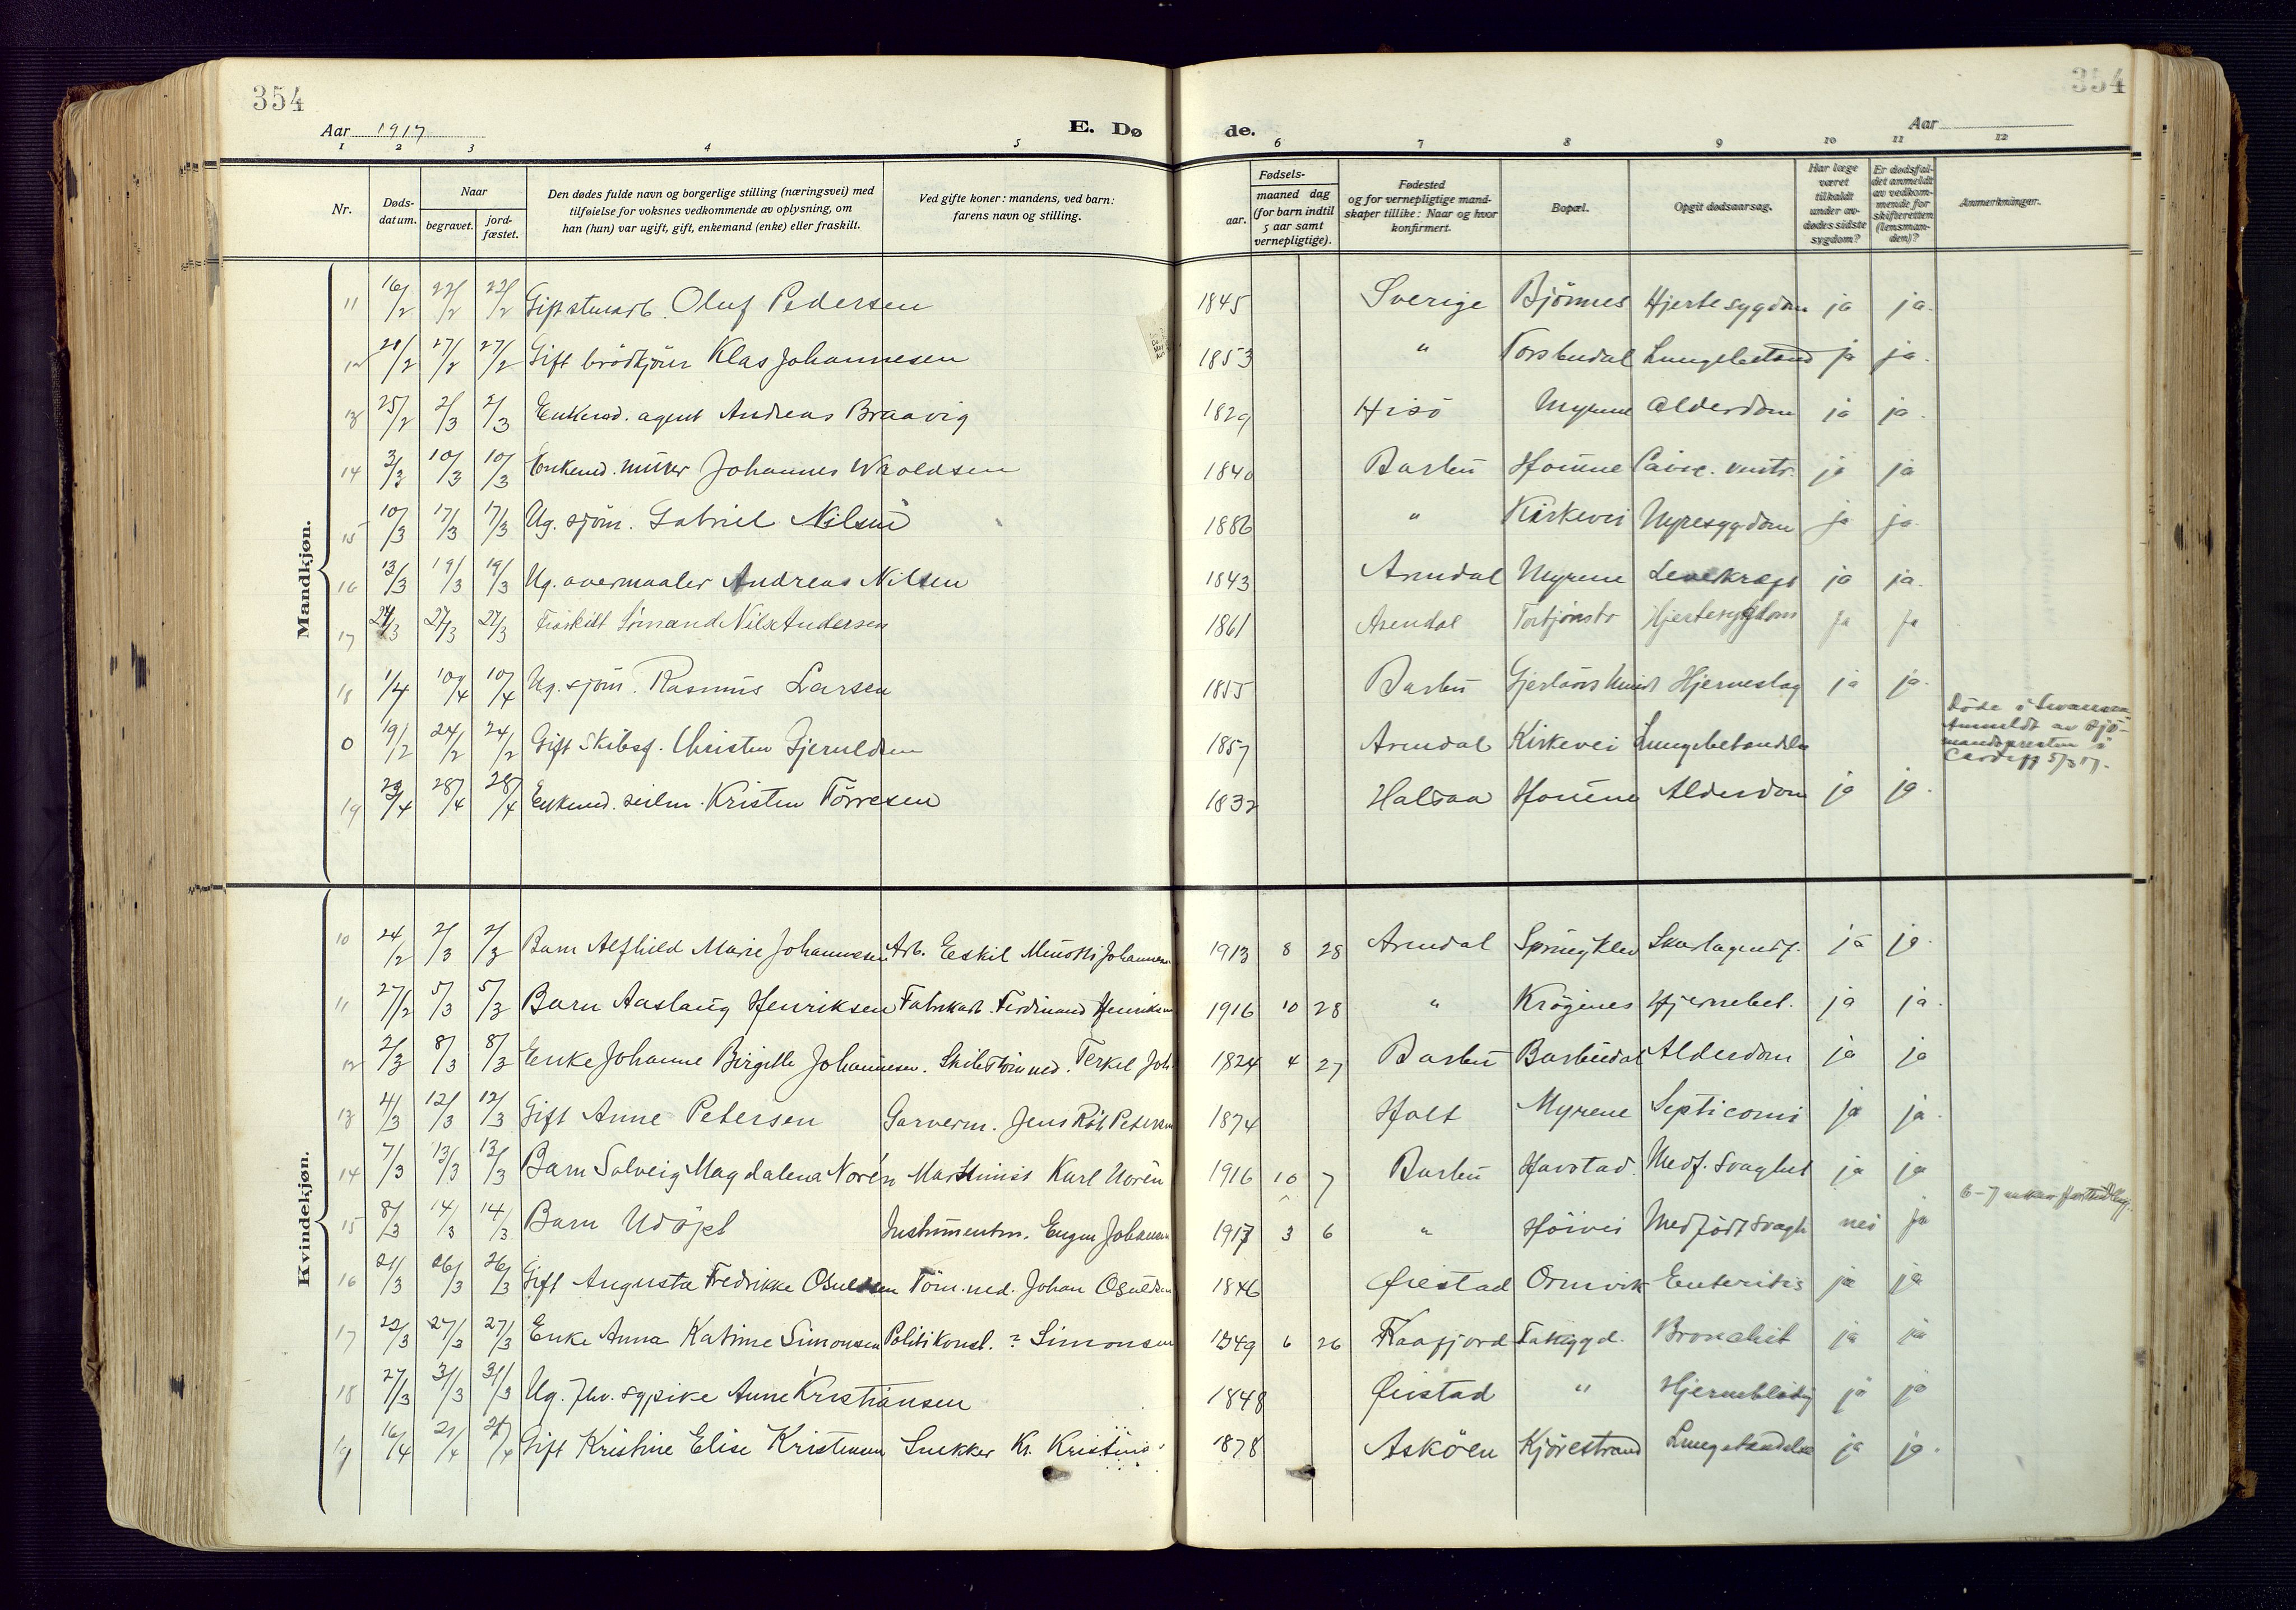 354
354
Aar 1917
E. Dø
de.
Aar
1 2 3 4 5 6 7 8 9 10 11 12
Nr.
Døds-
datum.
Naar
begravet.
jord-
fæstet.
Den dødes fulde navn og borgerlige stilling (næringsvei) med
tilføielse for voksnes vedkommende av oplysning, om
han (hun) var ugift, gift, enkemand (enke) eller fraskilt.
Ved gifte koner: mandens, ved barn:
farens navn og stilling.
Fødsels-
aar.
maaned dag
(for barn indtil
5 aar samt
vernepligtige).
Fødested
og for vernepligtige mand-
skaper tillike: Naar og hvor
konfirmert.
Bopæl.
Opgit dødsaarsag.
Har læge
været
tilkaldt
under av-
dødes sidste
sygdom?
Er dødsfal-
det anmeldt
av vedkom-
mende for
skifteretten
(lensman-
den)?
Anmerkninger.
Mandkjøn.
11 16/2 22/2 22/2 Oluf Pedersen 1845 Sverige Bjönnes Hjertesygdom ja ja.
12 20/2 27/2 27/2 Gift brödkjörer Klas Johannesen 1853 " Torsbudal ja ja.
13 25/2 2/3 2/3 Enkemd. agent Andreas Braavig 1829 Hisö Myrene Alderdom ja ja.
14 3/3 10/3 10/3 Enkemd. murer Johannes 1840 Barbu Houene ja ja
15 10/3 17/3 17/3 Ug. sjöm. Gabriel Nilsen 1886 " Kirkevei Nyresygdom ja ja.
16 13/3 19/3 19/3 Ug. overmaaler Andreas Nilsen 1843 Arendal Myrene Leverkræft ja ja.
17 24/3 27/3 27/3 Fraskilt Sömand Nils Andersen 1861 Arendal Hjertesygdom ja ja
18 1/4 10/4 10/4 Ug. sjöm. Rasmus Larsen 1855 Barbu Hjerneslag ja ja.
0 19/2 24/2 24/2 Gift Skibsf. Christen Gjeruldsen 1857 Arendal Kirkevei Lungebetændelse
Döde i Swansea
Anmeldt av sjö-
mandspresten i
Cardiff 5/3 17.
19 23/4 28/4 28/4 Enkemd. seilm. Kristen Törresen 1832 Halsaa Houene Alderdom ja ja.
Kvindekjøn.
10 24/2 2/3 2/3 Barn Alfhild Marie Johannesen Arb. Eskil Johannesen 1913 8 28 Arendal Springklev Skarlagensf. ja ja.
11 27/2 5/3 5/3 Barn Aaslaug Henriksen Fabrikarb. Ferdinand Henriksen 1916 10 28 " Krögenes Hjernebet. ja ja.
12 2/3 8/3 8/3 Enke Johanne Birgitte Johannesen. Skibstömmed. Terkel Joh. 1824 4 27 Barbu Barbudal Alderdom ja ja
13 4/3 12/3 12/3 Gift Anne Petersen Garverm. Jens Rob. Petersen 1874 Holt Myrene Septicomi ja ja.
14 7/3 13/3 13/3 Barn Solveig Magdalena Norén Maskinist Karl Norén 1916 10 7 Barbu Havstad. Medf. svaghet ja ja
15 8/3 14/3 14/3 Barn Udöpt Instrumentm. Eugen Johansen 1917 3 6 " Höivei Medfödt svagh nei ja
16 21/3 26/3 26/3 Gift Augusta Fredrikke Osuldsen Töm.med. Johan Osuldsen 1846 Öiestad Osmvik Enteritis ja ja
17 22/3 27/3 27/3 Enke Anna Katrine Simonsen Politikonst. ? Simonsen 1849 6 26 Kaafjord Fattiggd. Bronchit ja ja
18 27/3 31/3 31/3 Ug. fhv. sypike Anne Kristiansen 1848 Öiestad " Hjerneblödn. ja ja
19 16/4 21/4 21/4 Gift Kristine Elise Kristensen Snekker Kr. 1878 Asköen Kjörestrand Lungebetændelse ja ja.